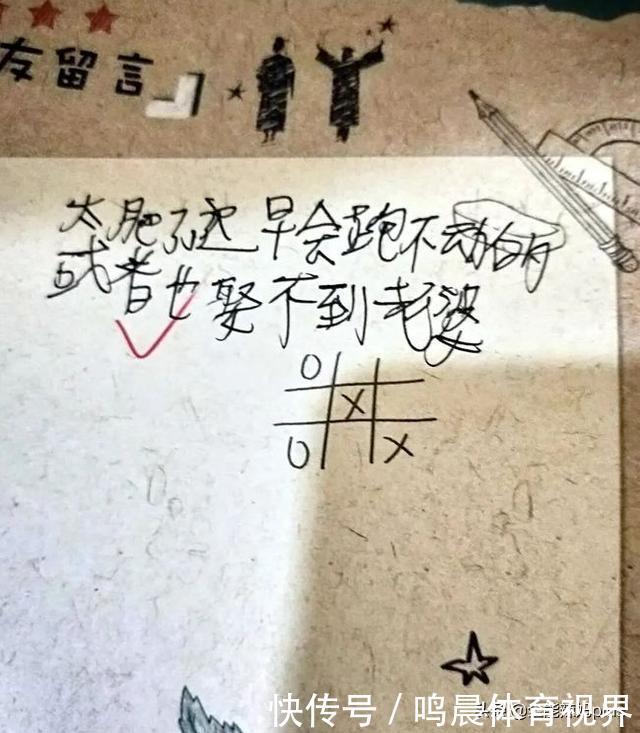 友留言
太肥了这早会跑不动的
或者也娶不到老婆
O
X
O X
快传号 / 鸣晨体育视界